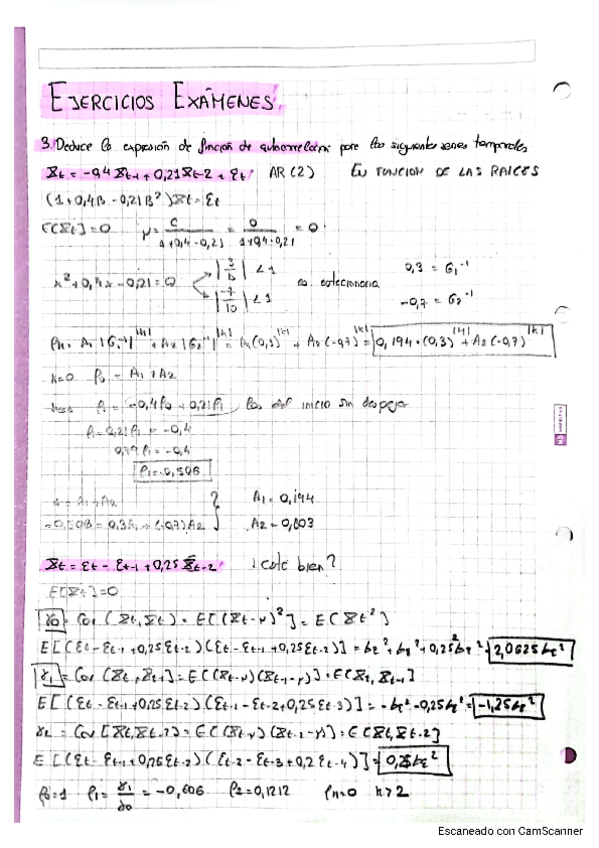 EJERCICIOS EXÁMENES
3. Deduce la expresión de función de autocorrelación para las siguientes series temporales
Xt = -0,4Xt-1 + 0,21Xt-2 + Et AR(2) EN FUNCION DE LAS RAICES
(1+0,4B - 0,21B²)Xt = Et
E(Xt)=0 μ = C / 1+0,4-0,21 = 0 / 1+0,4-0,21 = 0
x²+0,4x-0,21=0 |3/10| < 1 0,3 = G1⁻¹
|-7/10| < 1 es estacionaria -0,7 = G2⁻¹
ρk = A1 |G1⁻¹|^|k| + A2 |G2⁻¹|^|k| = A1(0,3)^|k| + A2(-0,7)^|k| = 0,194·(0,3)^|k| + A2(-0,7)^|k|
k=0 ρ0 = A1+A2
ρ1 = -0,4ρ0 + 0,21ρ1 del inicio sin despejar
ρ1-0,21ρ1 = -0,4
0,79ρ1 = -0,4
ρ1=-0,506
1 = A1 + A2 A1 = 0,194
-0,506 = 0,3A1 + (-0,7)A2 A2 = 0,803
Xt = Et - Et-1 + 0,25 Xt-2 ¿Esté bien?
E[Xt]=0
γ0 = Cov (Xt,Xt) = E[(Xt-μ)²] = E(Xt²)
E[(Et-Et-1+0,25Et-2)(Et-Et-1+0,25Et-2)] = σε²+σε²+0,25²σε² = 2,0625σε²
γ1 = Cov (Xt,Xt-1) = E[(Xt-μ)(Xt-1-μ)] = E(Xt,Xt-1]
E[(Et-Et-1+0,25Et-2)(Et-1-Et-2+0,25Et-3)] = -σε²-0,25σε² = -1,25σε²
γ2 = Cov[Xt,Xt-2] = E[(Xt-μ)(Xt-2-μ)] = E(Xt,Xt-2]
E[(Et-Et-1+0,25Et-2)(Et-2-Et-3+0,2Et-4)] = 0,25σε²
ρ0=1 ρ1 = γ1/γ0 = -0,606 ρ2=0,1212 ρk=0 k>2
Escaneado con CamScanner